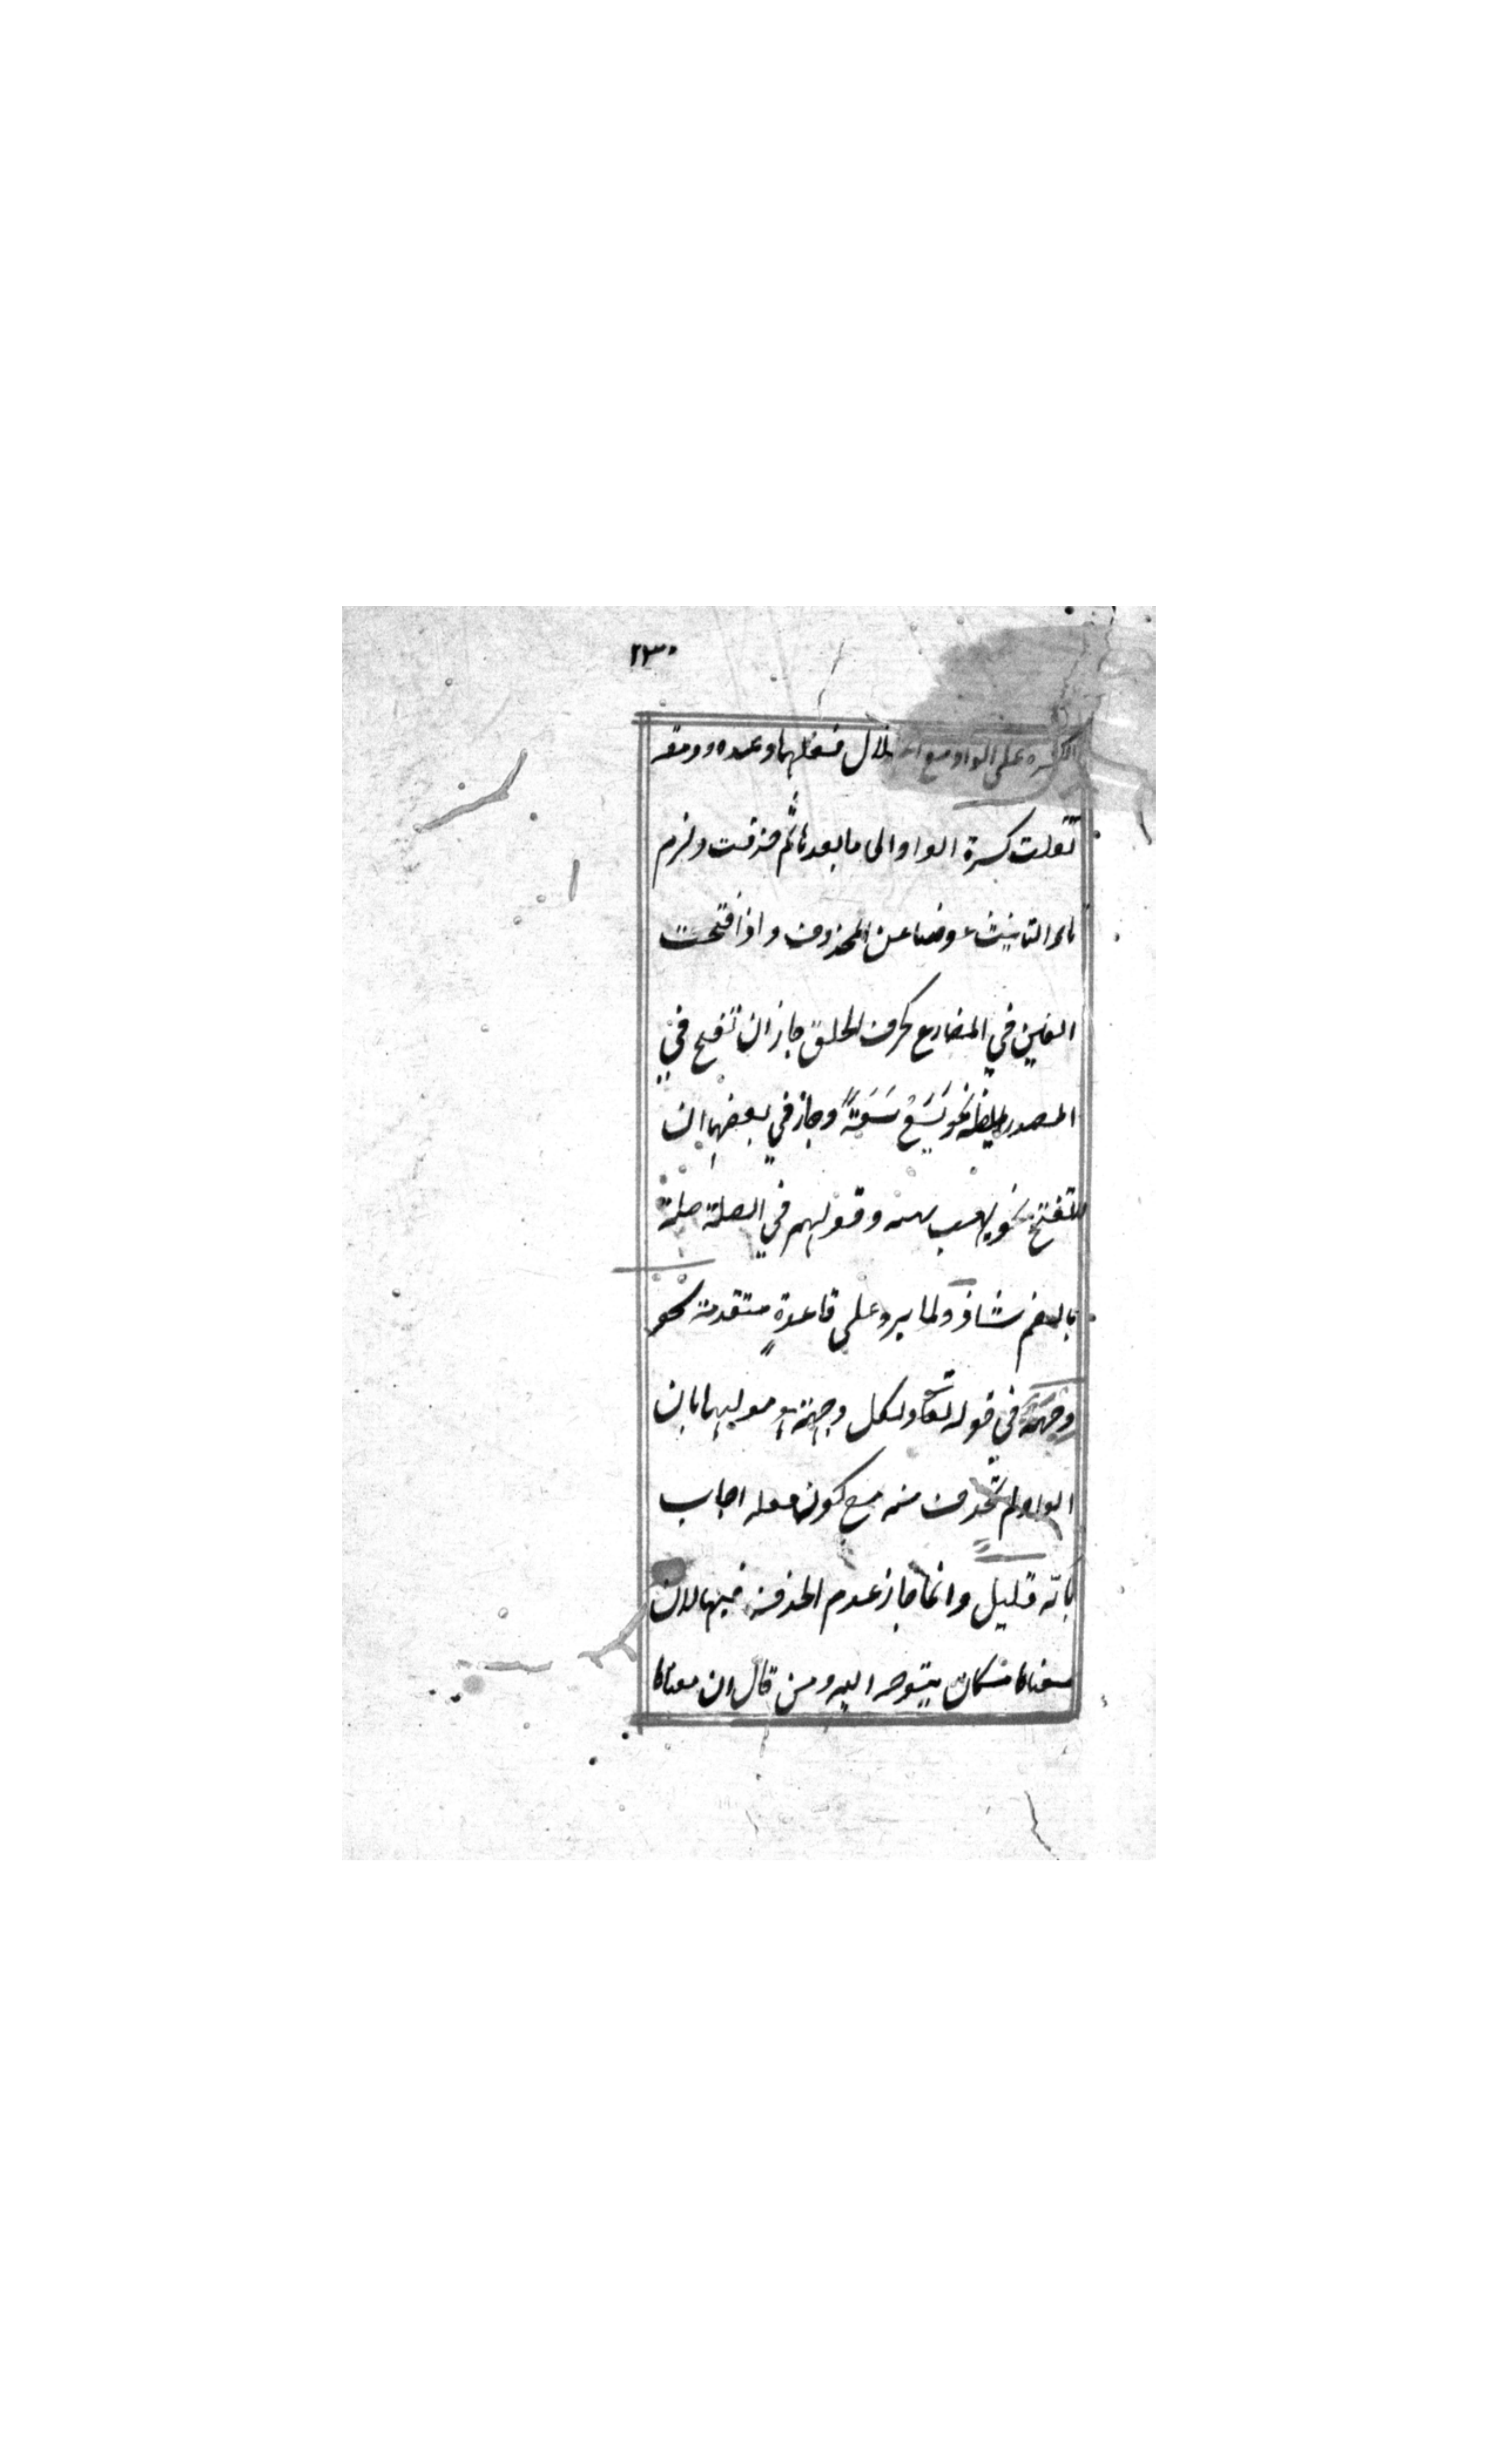 ٢٣٠
الكسرة على الواو مع اعلال فعلهما وعدة ومقة
نقلت كسرة الواو الى ما بعدها ثم حذفت ولزم
تاء التانيث عوضا عن المحذوف واذا فتحت
العين في المضارع لحرف الحلق جاز ان تفتح في
المصدر ايضا نحو يَسَعُ سَعَةً وجاز في بعضها ان
لا تفتح نحو يهب هبة وقولهم في الصلة صلة
بالضم شاذ ولما يرد على قاعدةٍ متقدمة نحو
وجهة في قوله تعالى ولكل وجهة هو موليها بان
الواو لم تحذف منه مع كون فعله اجاب
بانه قليل وانما جاز عدم الحذف فيها لان
معناها مكان يتوجه اليه ومن قال ان معناها